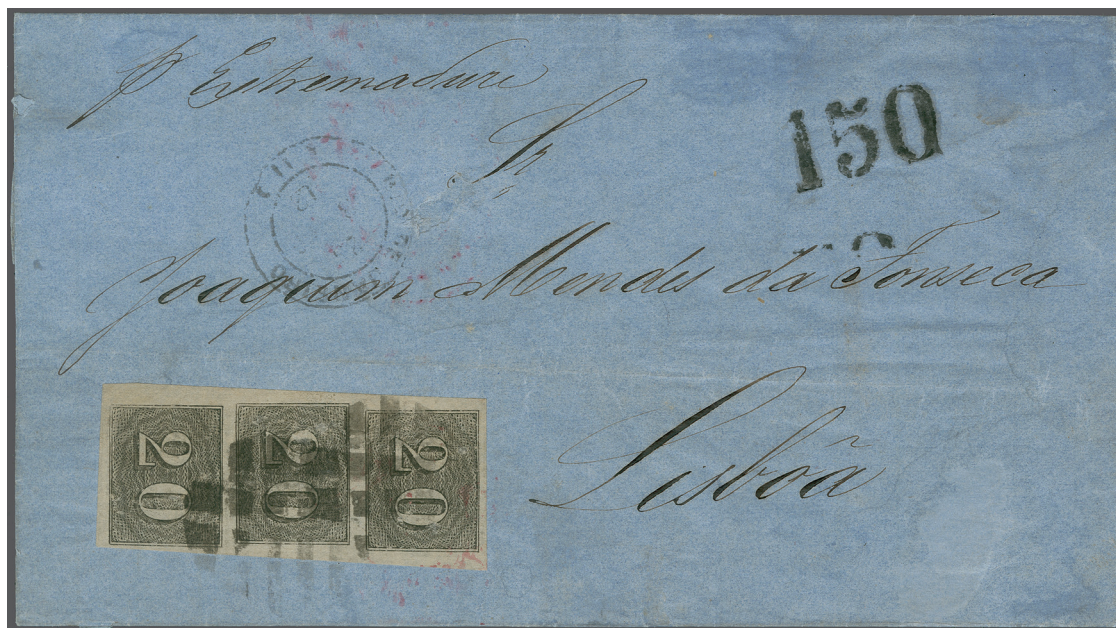 p Estremadure
150
Sr
Joaquim Mendes da Fonseca
Lisbôa
20
20
20